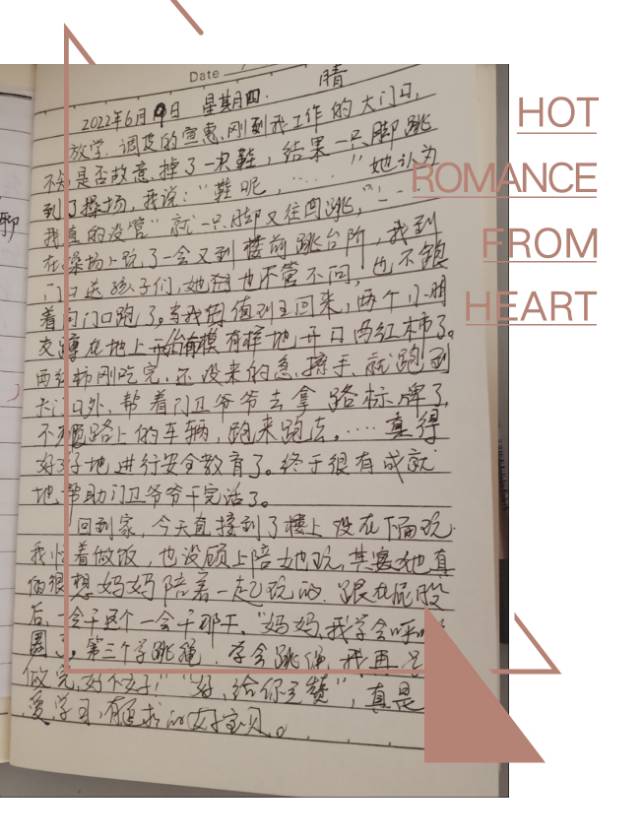 Date
晴
2022年6月9日 星期四.
放学,调皮的宣惠,刚到我工作的大门口,
不知是否故意掉了一只鞋,结果一只脚跳
到了操场,我说:"鞋呢,……"她认为
我真的没管"就一只脚又往回跳,
在操场上玩了一会又到楼前跳台阶,我到
门口送孩子们,她也不管不问,也不跟
着向门口跑了。当我们值班回来,两个小朋
友蹲在地上开始有模有样地开口西红柿了。
西红柿刚吃完,还没来的急擦手,就跑到
大门口外,帮着门卫爷爷去拿路标牌了,
不顾路上的车辆,跑来跑去。……真得
好好地进行安全教育了。终于很有成就
地帮助门卫爷爷干完活了。
回到家,今天直接到了楼上没在下面玩.
我忙着做饭,也没顾上陪她玩,其实她真
的很想妈妈陪着一起玩的.跟在屁股
后,一会干这个一会干那个."妈妈,我学会呼啦
圈了,第三个学跳绳,学会跳绳,我再
做完,好不好!""好,给你点赞",真是
爱学习,有追求的好宝贝。
HOT
ROMANCE
FROM
HEART